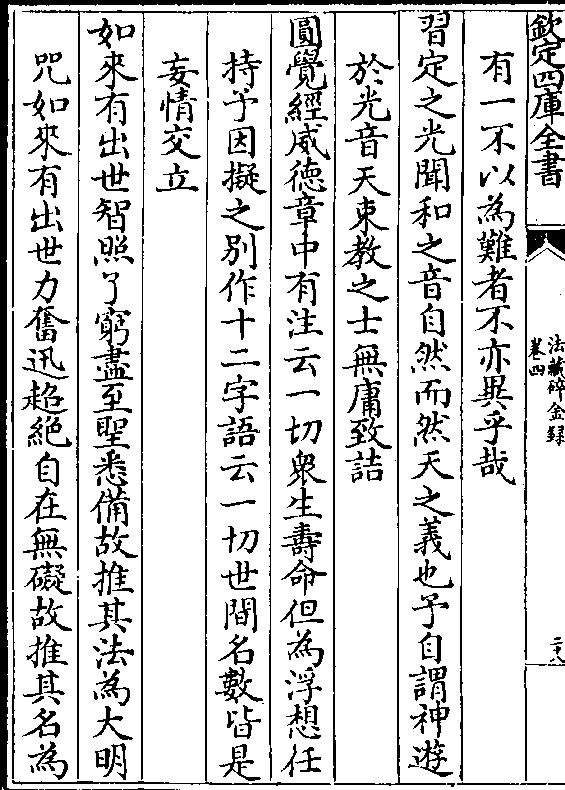 欽定四庫全書
法藏碎金録
卷四
二十八
有一不以為難者不亦異乎哉
習定之光聞和之音自然而然天之義也予自謂神遊
於光音天東教之士無庸致詰
圓覺經威徳章中有注云一切衆生壽命但為浮想任
持予因擬之别作十二字語云一切世間名數皆是
妄情交立
如來有出世智照了窮盡至聖悉備故推其法為大明
咒如來有出世力奮迅超絶自在無礙故推其名為